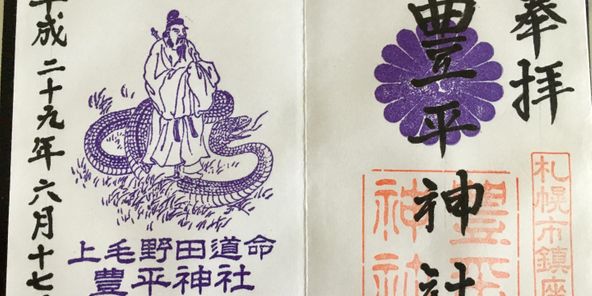 奉拝
豊平神社
札幌市鎮座
豊平
神社
平成二十九年六月十七
上毛野田道命
豊平神社